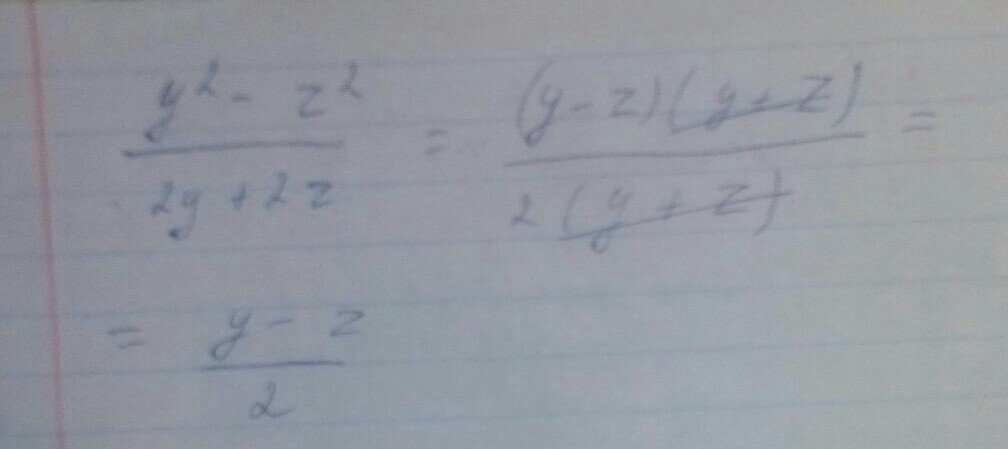 y² - z² / 2y + 2z = (y - z)(y + z) / 2(y + z) =
= y - z / 2